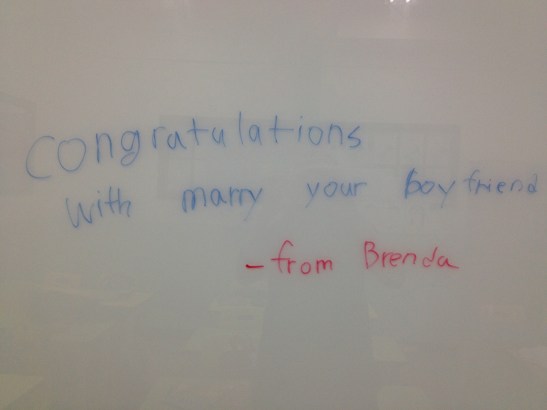 Congratulations
with marry your boyfriend
- from Brenda